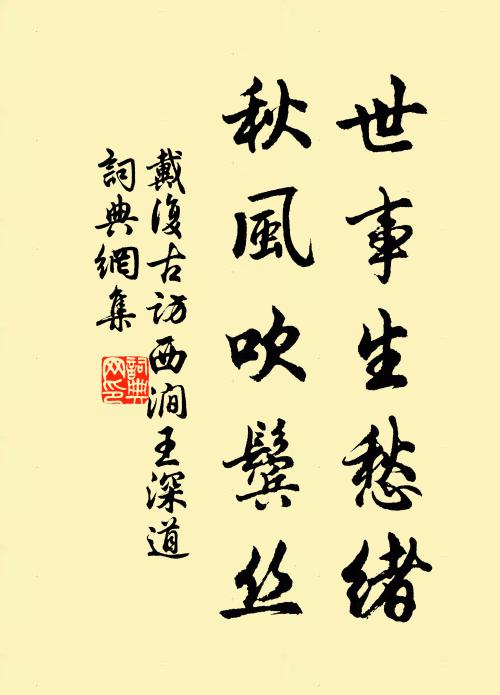 世事生愁緒
秋風吹鬓丝
戴復古访西澗王深道
詞典網集
詞典网印